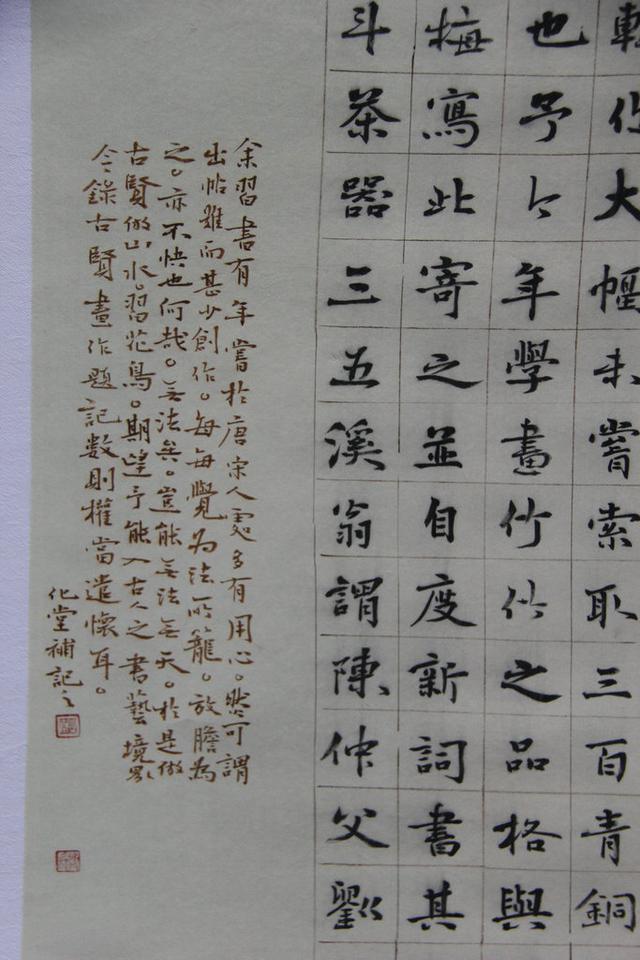 作大幅未嘗索取三百青銅
也予今年學畫竹竹之品格與
梅寫此寄之並自度新詞書其
斗茶器三五溪翁謂陳仲父劉
余習書有年嘗於唐宋人處多有用心。然可謂
出帖難而甚少創作。每每覺為法所籠。放膽為
之。亦不快也何哉。無法矣。豈能無法無天。於是倣
古賢倣山水。習花鳥。期望予能入古人之書藝境界
今錄古賢畫作題記數則權當遣懷耳。
化堂補記之